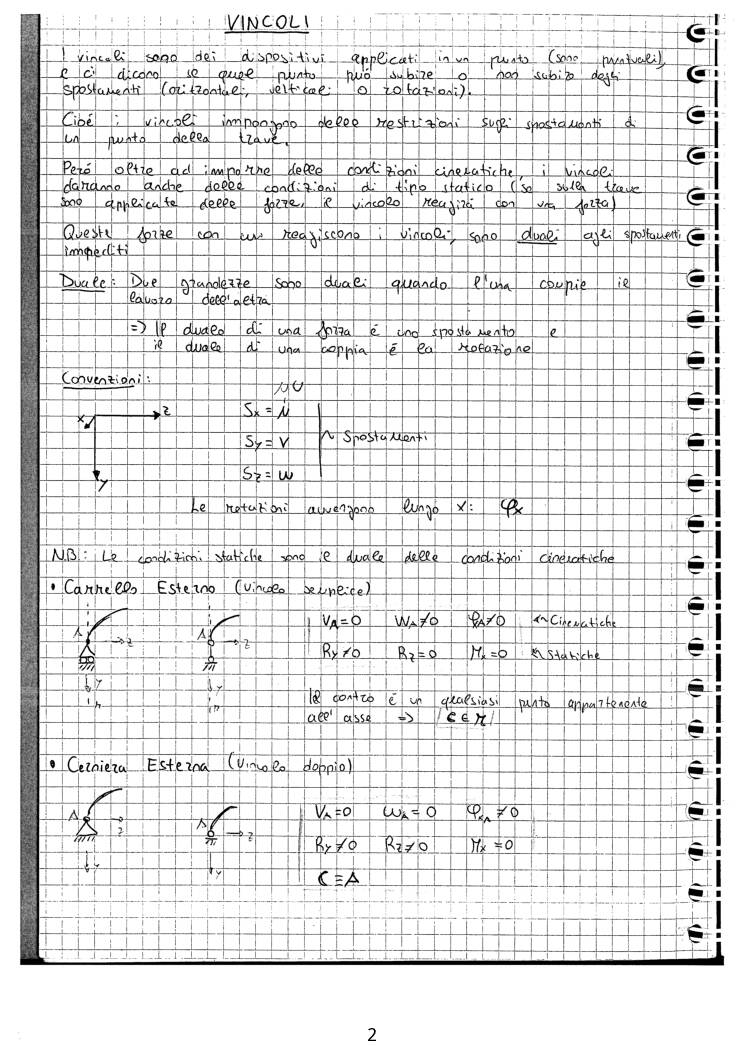 VINCOLI
I vincoli sono dei dispositivi applicati in un punto (sono puntuali),
e ci dicono se quel punto può subire o non subire degli
spostamenti (orizzontali, verticali o rotazioni).
Cioé i vincoli impongono delle restrizioni sugli spostamenti di
un punto della trave.
Però oltre ad imporre delle condizioni cinematiche, i vincoli
daranno anche delle condizioni di tipo statico (se sulla trave
sono applicate delle forze, il vincolo reagirà con una forza)
Queste forze con cui reagiscono i vincoli, sono duali agli spostamenti
impediti
Duale: Due grandezze sono duali quando l'una compie il
lavoro dell'altra
=> Il duale di una forza é uno spostamento e
il duale di una coppia é la rotazione
Convenzioni:
x z y
Sx = u
Sy = v
Sz = w
~ Spostamenti
Le rotazioni avvengono lungo x: φx
N.B.: Le condizioni statiche sono il duale delle condizioni cinematiche
• Carrello Esterno (vincolo semplice)
A z y r
A z y r
VA = 0 WA ≠ 0 φA ≠ 0 <~ Cinematiche
Ry ≠ 0 Rz = 0 Mx = 0 <~ Statiche
Il centro é un qualsiasi punto appartenente
all'asse => |C ∈ r|
• Cerniera Esterna (Vincolo doppio)
A z y
A z y
VA = 0 WA = 0 φxA ≠ 0
Ry ≠ 0 Rz ≠ 0 Mx = 0
C ≡ A
2